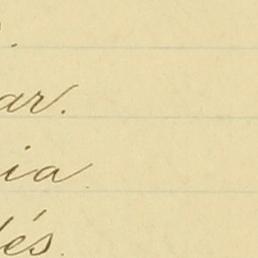 ar.
ia.
dés.